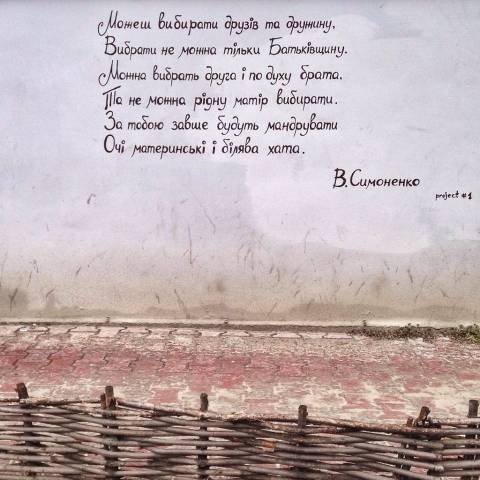 Можеш вибирати друзів та дружину,
Вибрати не можна тільки Батьківщину.
Можна вибрать друга і по духу брата,
Та не можна рідну матір вибирати.
За тобою завше будуть мандрувати
Очі материнські і білява хата.
В.Симоненко
project #1